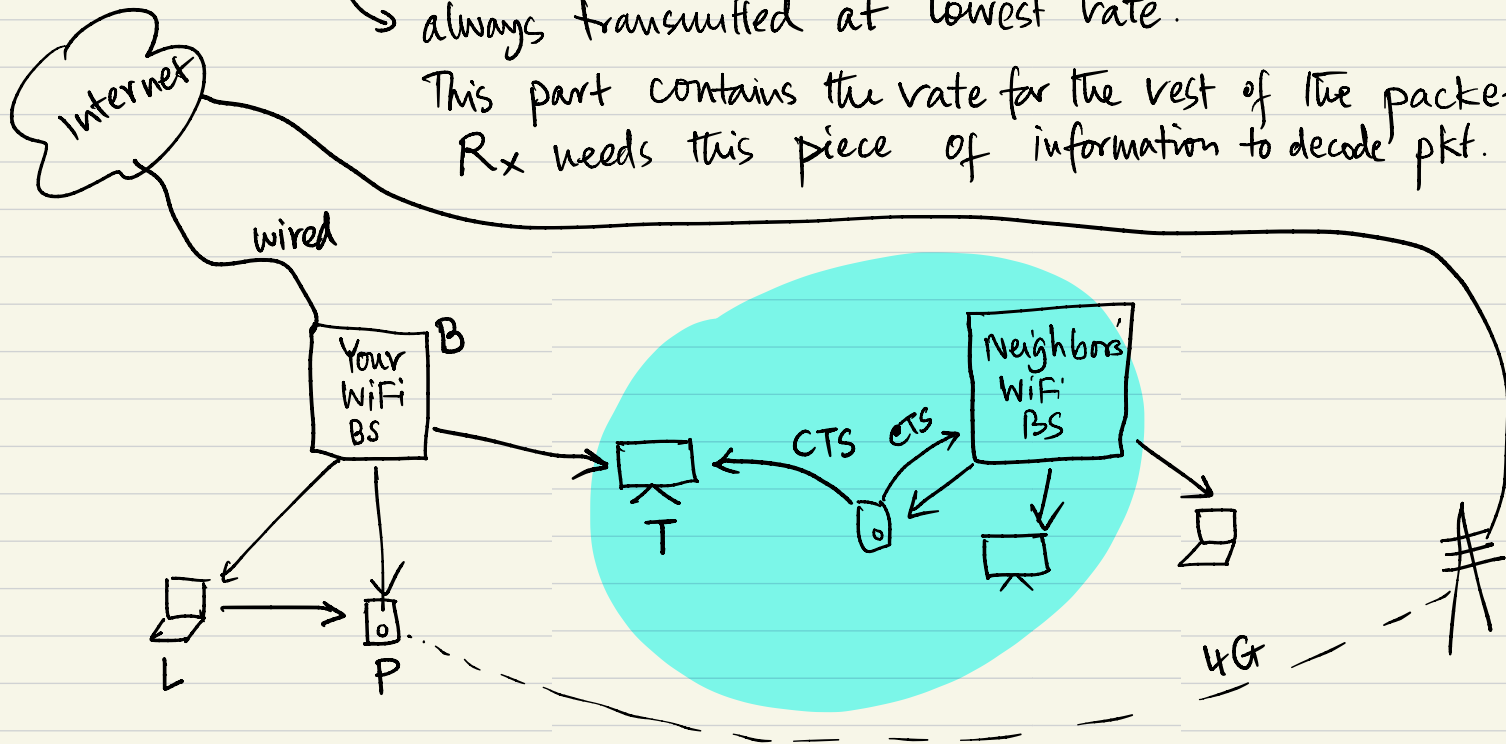 always transmitted at lowest rate.
This part contains the rate for the rest of the packe
Rx needs this piece of information to decode pkt.
Internet
wired
B
Your
WiFi
BS
Neighbors'
WiFi
BS
CTS
CTS
T
L
P
4G